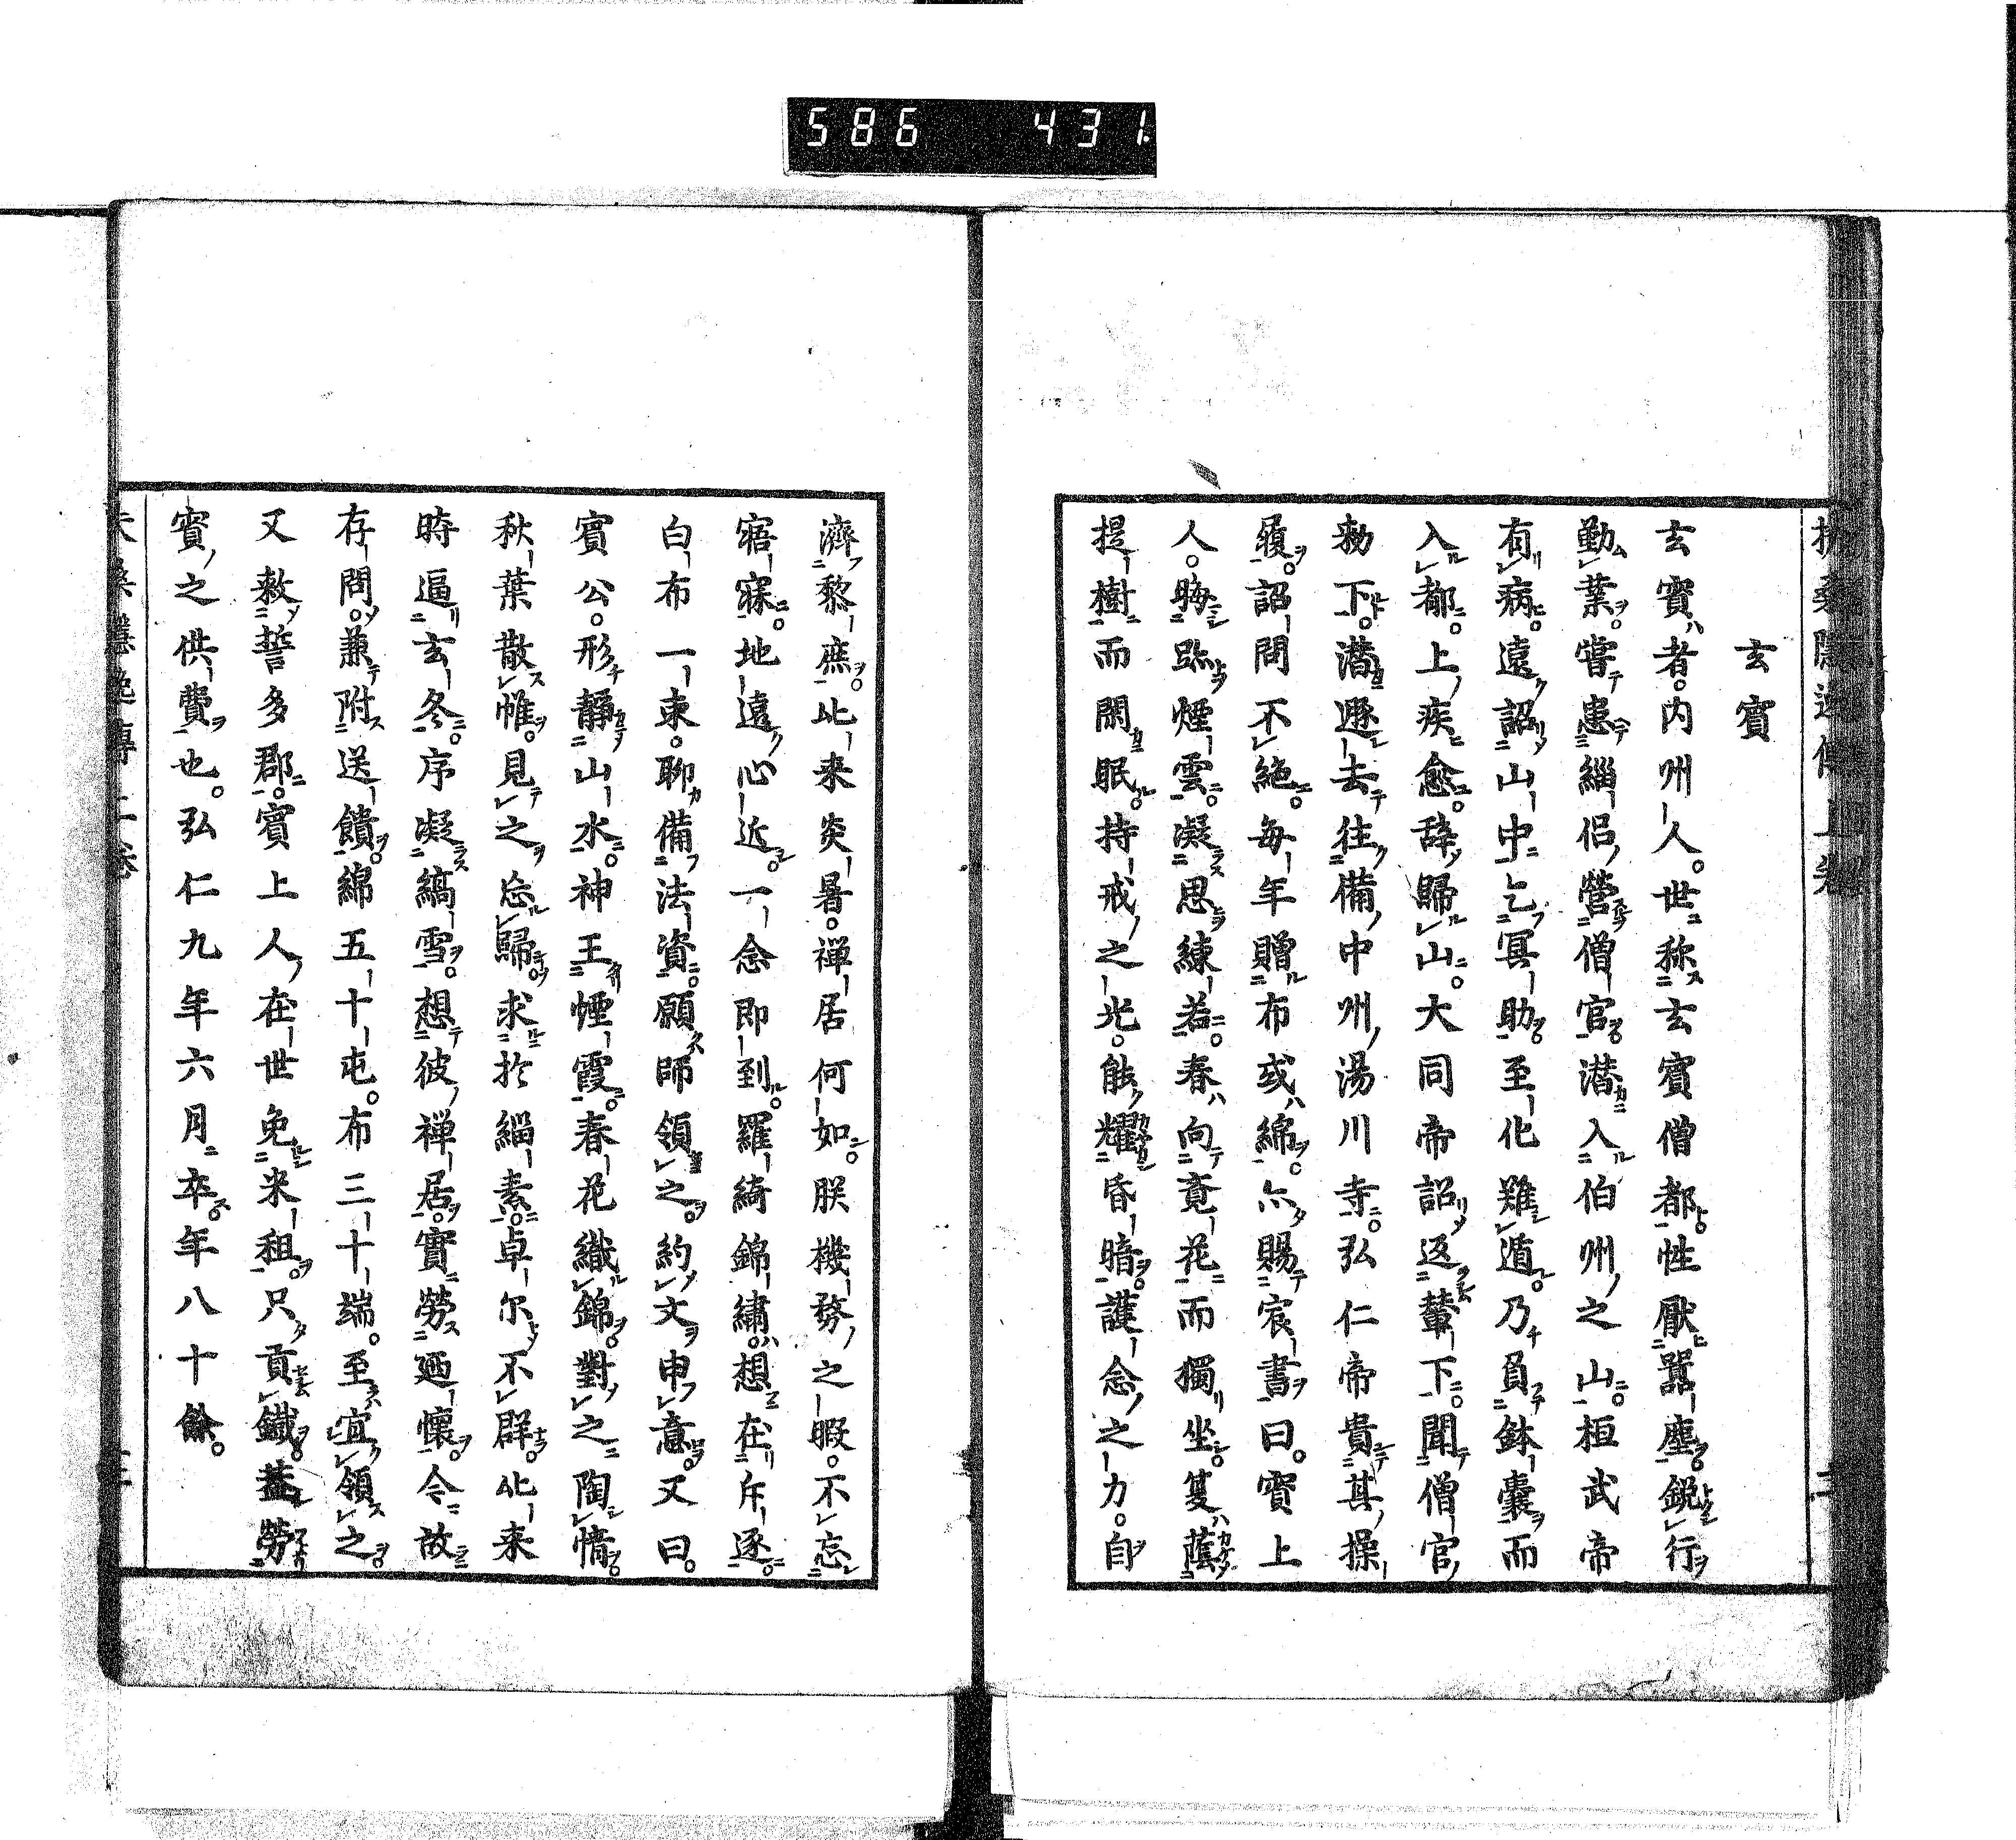 586 431
玄賓
玄賓者。内州人。世称玄賓僧都。性厭囂塵。鋭行
勤業。嘗患緇侶營僧官。潜入伯州之山。桓武帝
有病。遠詔山中。乞冥助。至化難遁。乃負鉢嚢而
入都。上疾愈。辞歸山。大同帝詔返輦下。聞僧官
勅下。潜遯去往備中州湯川寺。弘仁帝貴其操
履。詔問不絶。毎年贈布或綿。亦賜宸書曰。賓上
人。晦跡煙雲。凝思練若。春向覚花而獨坐。夏蔭
提樹而閑眠。持戒之光。能耀昏暗。護念之力。自
濟黎庶。此来炎暑。禅居何如。朕機務之暇。不忘
寤寐。地遠心近。一念即到。羅綺錦繍。想在斥逐。
白布一束。聊備法資。願師領之。約文申意。又曰。
賓公。形静山水。神王煙霞。春花織錦。對之陶情。
秋葉散帷。見之忘歸。求於緇素。卓尓不群。此来
時逼玄冬。序凝縞雪。想彼禅居。實勞迺懷。令故
存問。兼附送饋。綿五十屯。布三十端。至宜領之。
又敕誓多郡。賓上人在世免米租。只貢鐵。蓋勞
賓之供費也。弘仁九年六月卒。年八十餘。